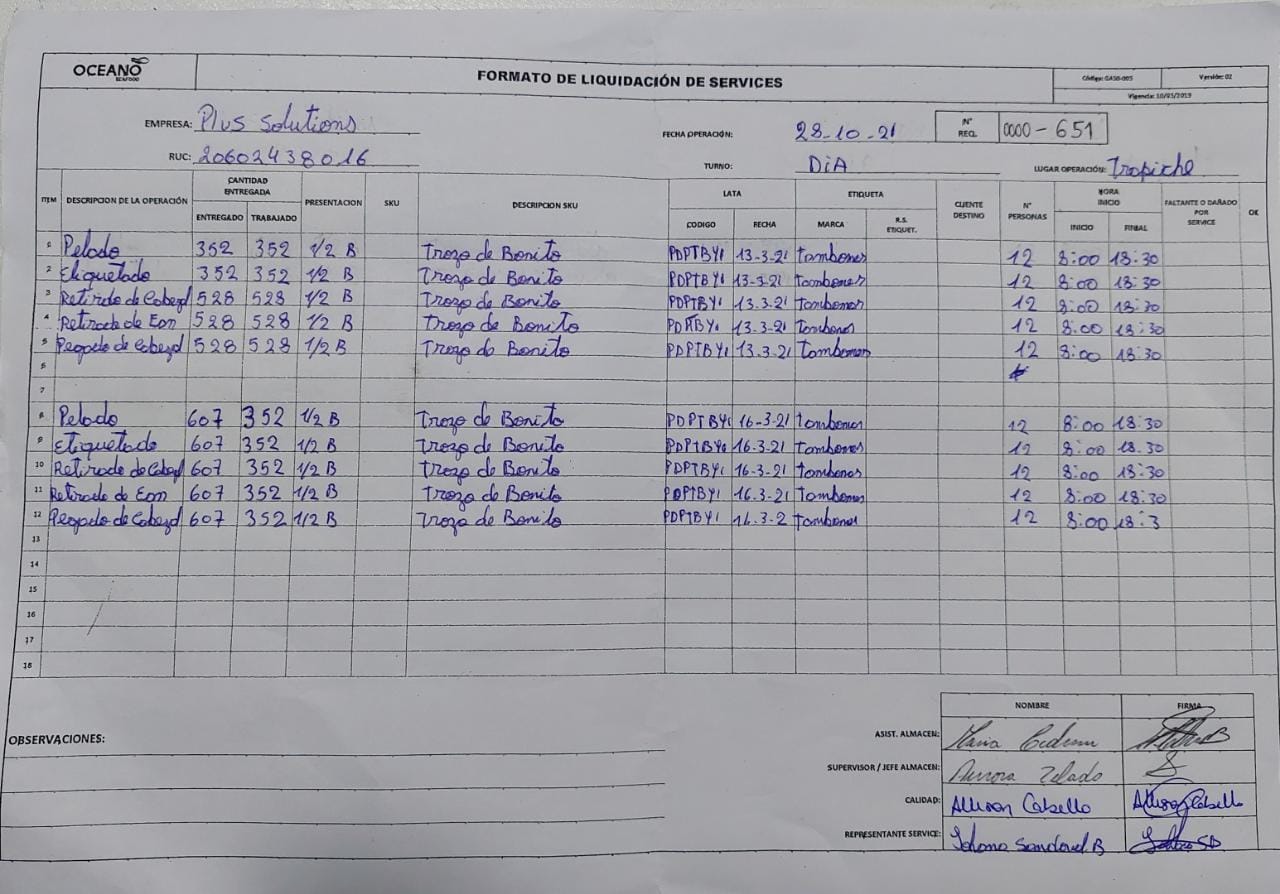 OCEANO SEAFOOD
FORMATO DE LIQUIDACIÓN DE SERVICES
Código: GASG-005 Versión: 02
Vigencia: 10/05/2019
EMPRESA: Plus Solutions
FECHA OPERACIÓN: 28-10-21
N° REQ. 0000-651
RUC: 20602438016
TURNO: DiA
LUGAR OPERACIÓN: Trapiche
ITEM DESCRIPCION DE LA OPERACIÓN CANTIDAD ENTREGADA PRESENTACION SKU DESCRIPCION SKU LATA ETIQUETA CLIENTE DESTINO N° PERSONAS HORA INICIO FALTANTE O DAÑADO POR SERVICE OK
ENTREGADO TRABAJADO CODIGO FECHA MARCA R.S. ETIQUET. INICIO FINAL
1 Pelado 352 352 1/2 B Trozo de Bonito PDPTBY1 13-3-21 tombones 12 8:00 18:30
2 Etiquetado 352 352 1/2 B Trozo de Bonito PDPTBY1 13-3-21 tombones 12 8:00 18:30
3 Retirado de Cabezal 528 528 1/2 B Trozo de Bonito PDPTBY1 13.3-21 tombones 12 8:00 18:30
4 Retirado de Eon 528 528 1/2 B Trozo de Bonito 13.3-21 tombones 12 8:00 18:30
5 Pegado de Cabezal 528 528 1/2 B Trozo de Bonito PDPTBY1 13.3-21 Tombones 12 8:00 18:30
6
7
8 Pelado 607 352 1/2 B Trozo de Bonito PDPTBY1 16-3-21 tombones 12 8:00 18:30
9 Etiquetado 607 352 1/2 B Trozo de Bonito PDPTBY1 16.3-21 tombones 12 8:00 18.30
10 Retirado de Cabezal 607 352 1/2 B Trozo de Bonito PDPTBY1 16.3-21 tombones 12 8:00 18:30
11 Retirado de Eon 607 352 1/2 B Trozo de Bonito PDPTBY1 16.3-21 tombones 12 8:00 18:30
12 Pegado de Cabezal 607 352 1/2 B Trozo de Bonito PDPTBY1 16.3-2 tombones 12 8:00 18:3
13
14
15
16
17
18
NOMBRE FIRMA
OBSERVACIONES:
ASIST. ALMACEN: Maria
SUPERVISOR / JEFE ALMACEN: Aurora Zelado
CALIDAD: Allison Cabello Allison Cabello
REPRESENTANTE SERVICE: Sandoval B